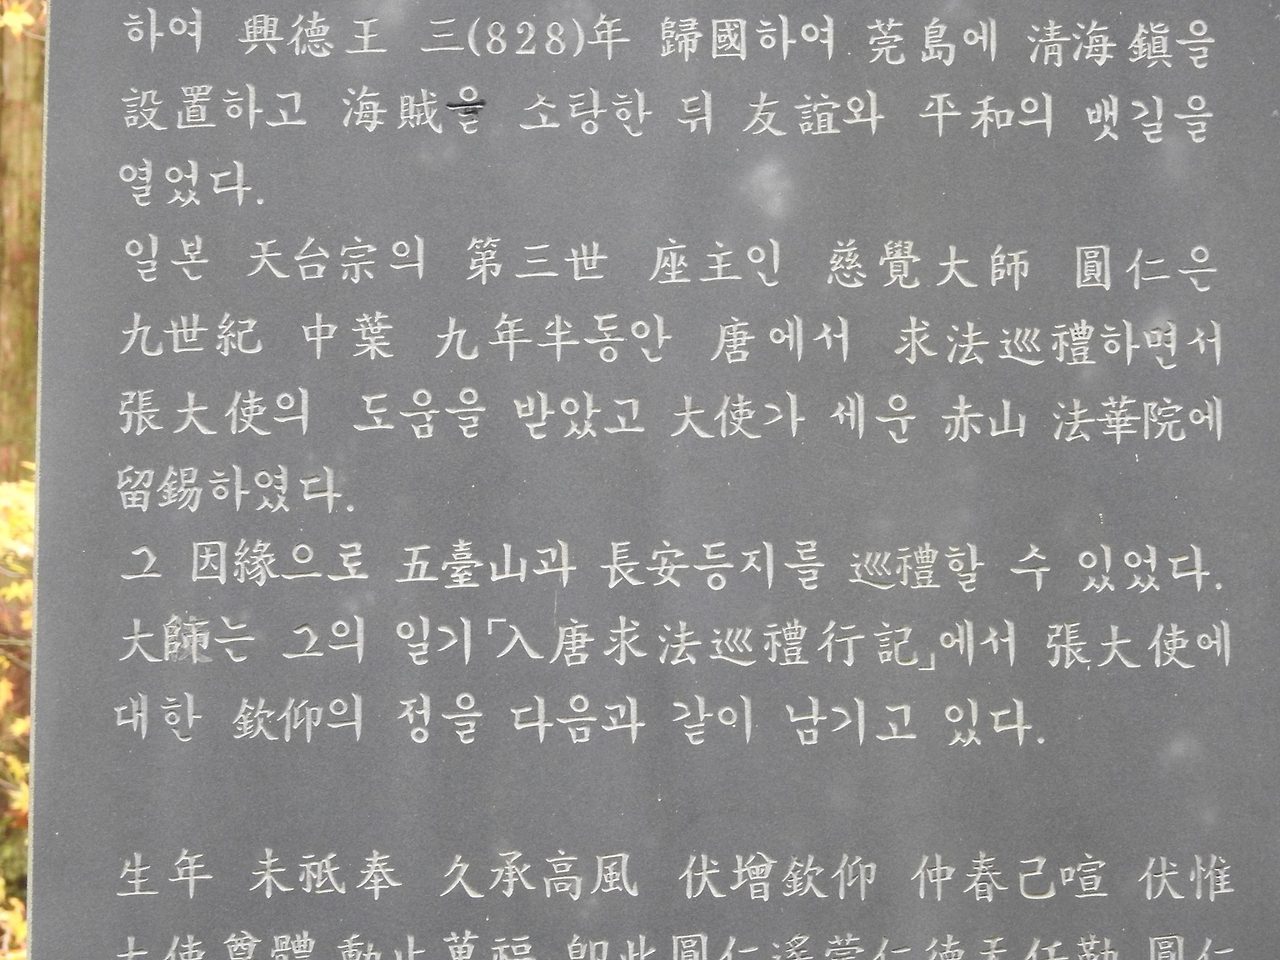 하여 興德王 三(828)年 歸國하여 莞島에 淸海鎭을
設置하고 海賊을 소탕한 뒤 友誼와 平和의 뱃길을
열었다.
일본 天台宗의 第三世 座主인 慈覺大師 圓仁은
九世紀 中葉 九年半동안 唐에서 求法巡禮하면서
張大使의 도움을 받았고 大使가 세운 赤山 法華院에
留錫하였다.
그 因緣으로 五臺山과 長安등지를 巡禮할 수 있었다.
大師는 그의 일기「入唐求法巡禮行記」에서 張大使에
대한 欽仰의 정을 다음과 같이 남기고 있다.
生年 未祗奉 久承高風 伏增欽仰 仲春己喧 伏惟
大使尊體 動止萬福 卽此圓仁遙蒙仁德無任勤 圓仁